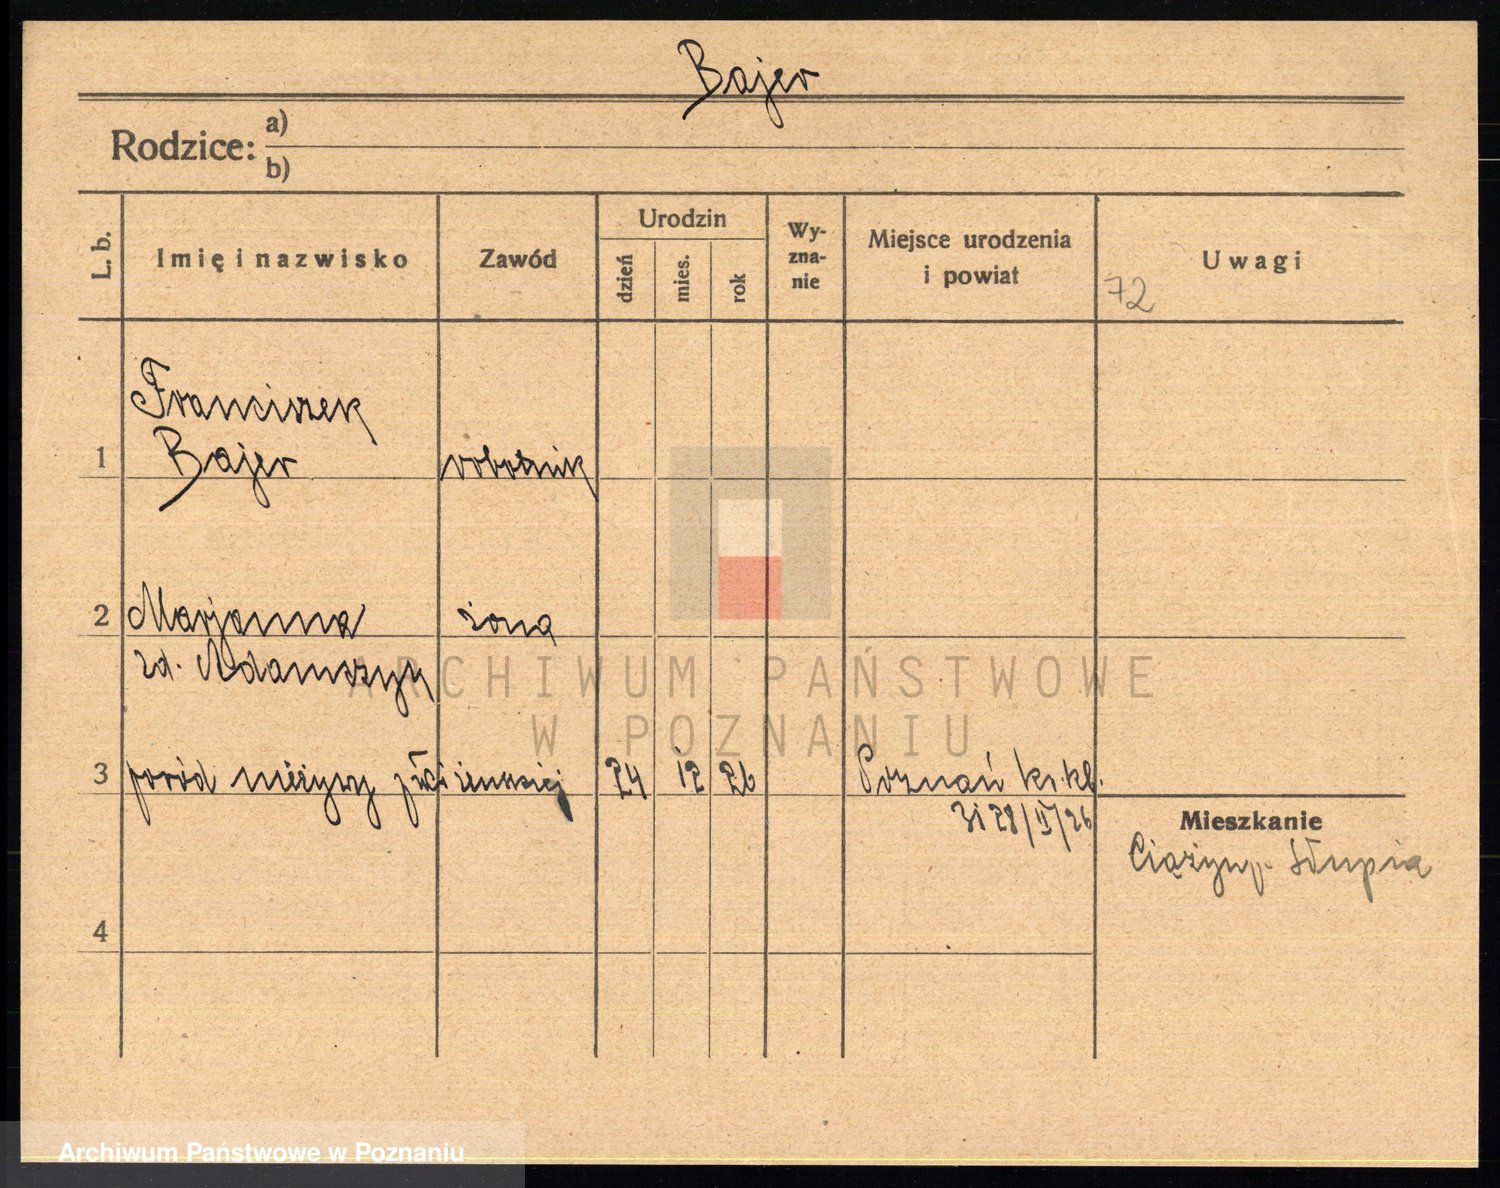 Bajer
Rodzice: a)
b)
L. b.
Imię i nazwisko
Zawód
Urodzin
dzień
mies.
rok
Wy-
zna-
nie
Miejsce urodzenia
i powiat
Uwagi
72
Franciszek
1 Bajer robotnik
2 Marjanna żona
zd. Adamszyk
3 poród nieżywy płci żeńskiej 24 12 26 Poznań kr. kl.
28/II/26
Mieszkanie
Ciążyń p. Słupia
4
ARCHIWUM PAŃSTWOWE
W POZNANIU
Archiwum Państwowe w Poznaniu